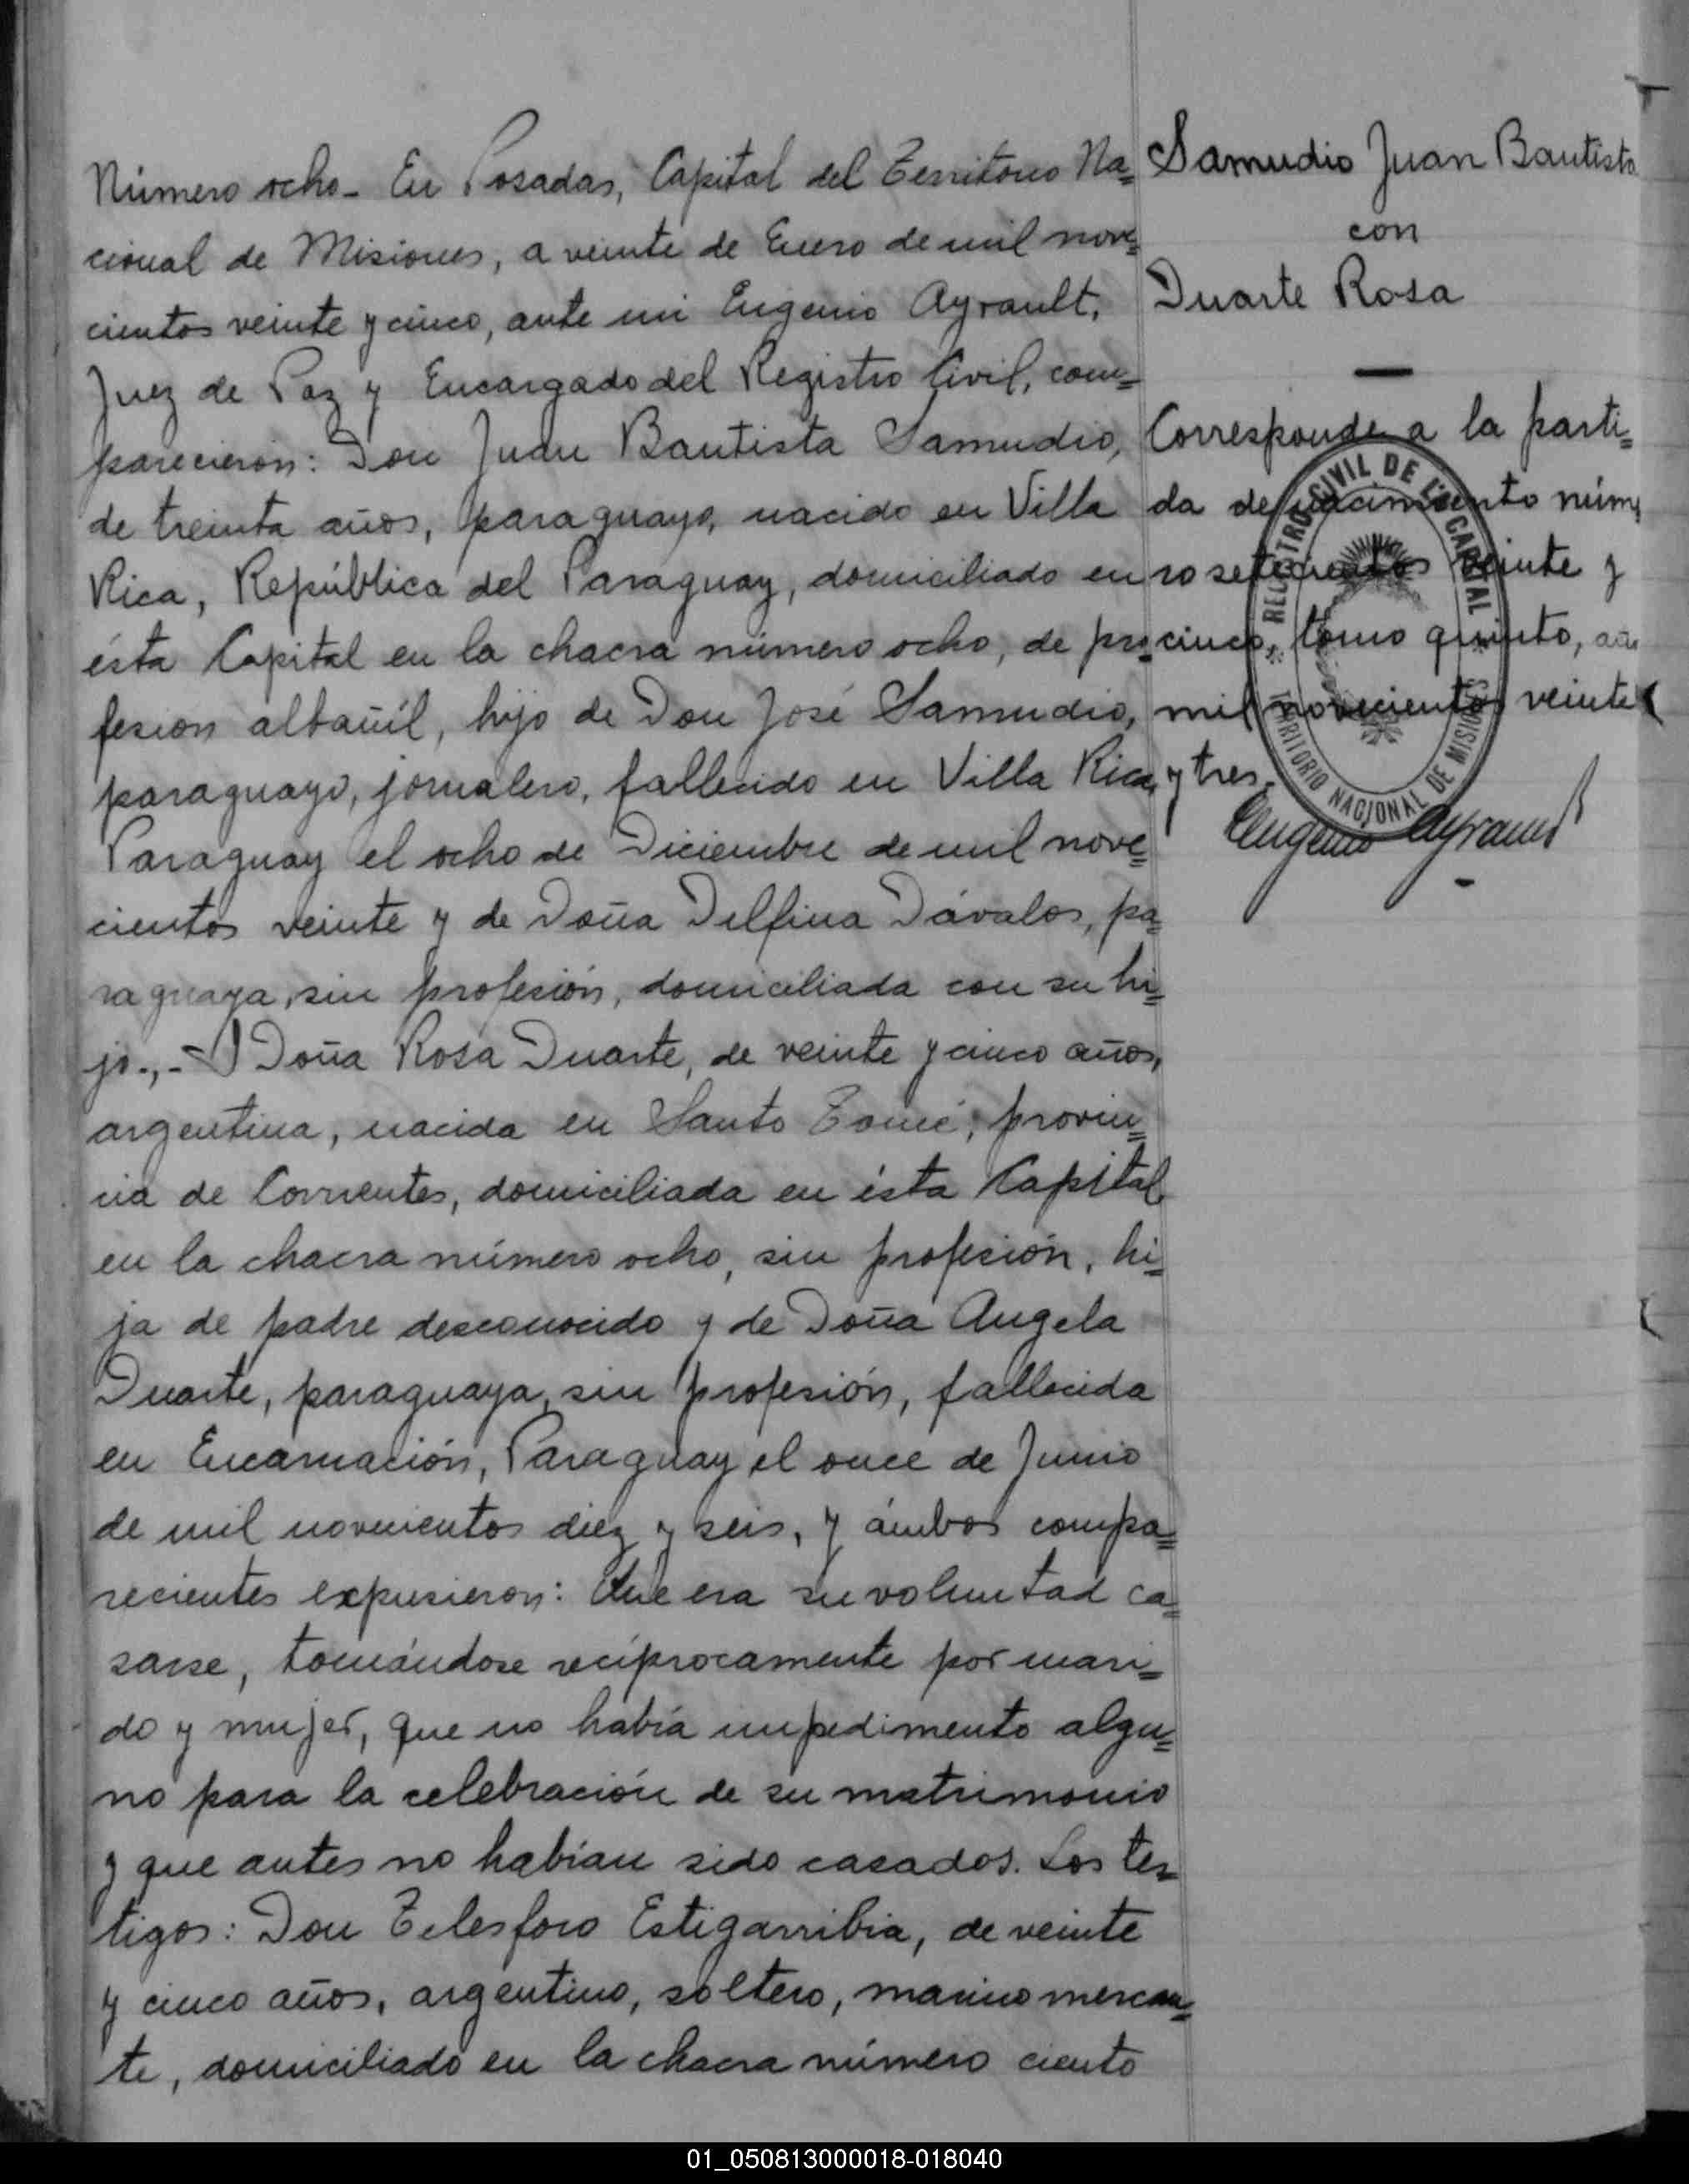 Número ocho_ En Posadas, Capital del Territorio Na=
cional de Misiones, a veinte de Enero de mil nove=
cientos veinte y cinco, ante mi Eugenio Ayrault,
Juez de Paz y Encargado del Registro Civil, com=
parecieron: Don Juan Bautista Samudio,
de treinta años, paraguayo, nacido en Villa
Rica, República del Paraguay, domiciliado en
ésta Capital en la chacra número ocho, de pro=
fesion albañil, hijo de Don José Samudio,
paraguayo, jornalero, fallecido en Villa Rica,
Paraguay el ocho de Diciembre de mil nove=
cientos veinte y de Doña Delfina Dávalos, pa=
raguaya, sin profesión, domiciliada con su hi=
jo.,- Doña Rosa Duarte, de veinte y cinco años,
argentina, nacida en Santo Tomé, provin=
cia de Corrientes, domiciliada en ésta Capital
en la chacra número ocho, sin profesión, hi=
ja de padre desconocido y de Doña Angela
Duarte, paraguaya, sin profesión, fallecida
en Encarnación, Paraguay el once de Junio
de mil novecientos diez y seis, y ámbos compa=
recientes expusieron: Que era su voluntad ca=
sarse, tomándose recíprocamente por mari=
do y mujer, que no había impedimento algu=
no para la celebración de su matrimonio
y que antes no habían sido casados. Los tes=
tigos: Don Telesforo Estigarribia, de veinte
y cinco años, argentino, soltero, marino mercan=
te, domiciliado en la chacra número ciento
Samudio Juan Bautista
con
Duarte Rosa
—
Corresponde a la parti=
da de nacimiento núme
ro setecientos veinte y
cinco, tomo quinto, año
mil novecientos veinte
y tres.
Eugenio Ayrault
REGISTRO CIVIL DE LA CAPITAL
TERRITORIO NACIONAL DE MISIONES
01_050813000018-018040